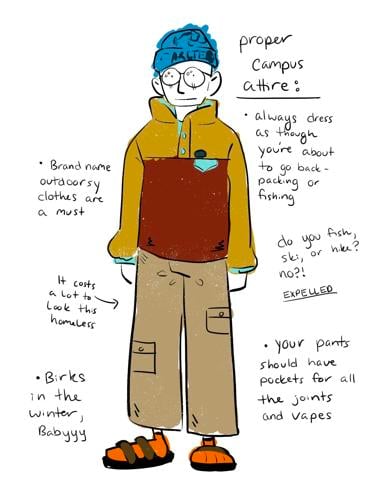 proper
campus
attire:
• always dress
as though
you're about
to go back-
packing or
fishing
• Brand name
outdoorsy
clothes are
a must
do you fish,
ski, or hike?
no?!
EXPELLED
It costs
a lot to
look this
homeless
• your pants
should have
pockets for all
the joints
and vapes
• Birks
in the
winter,
Babyyy